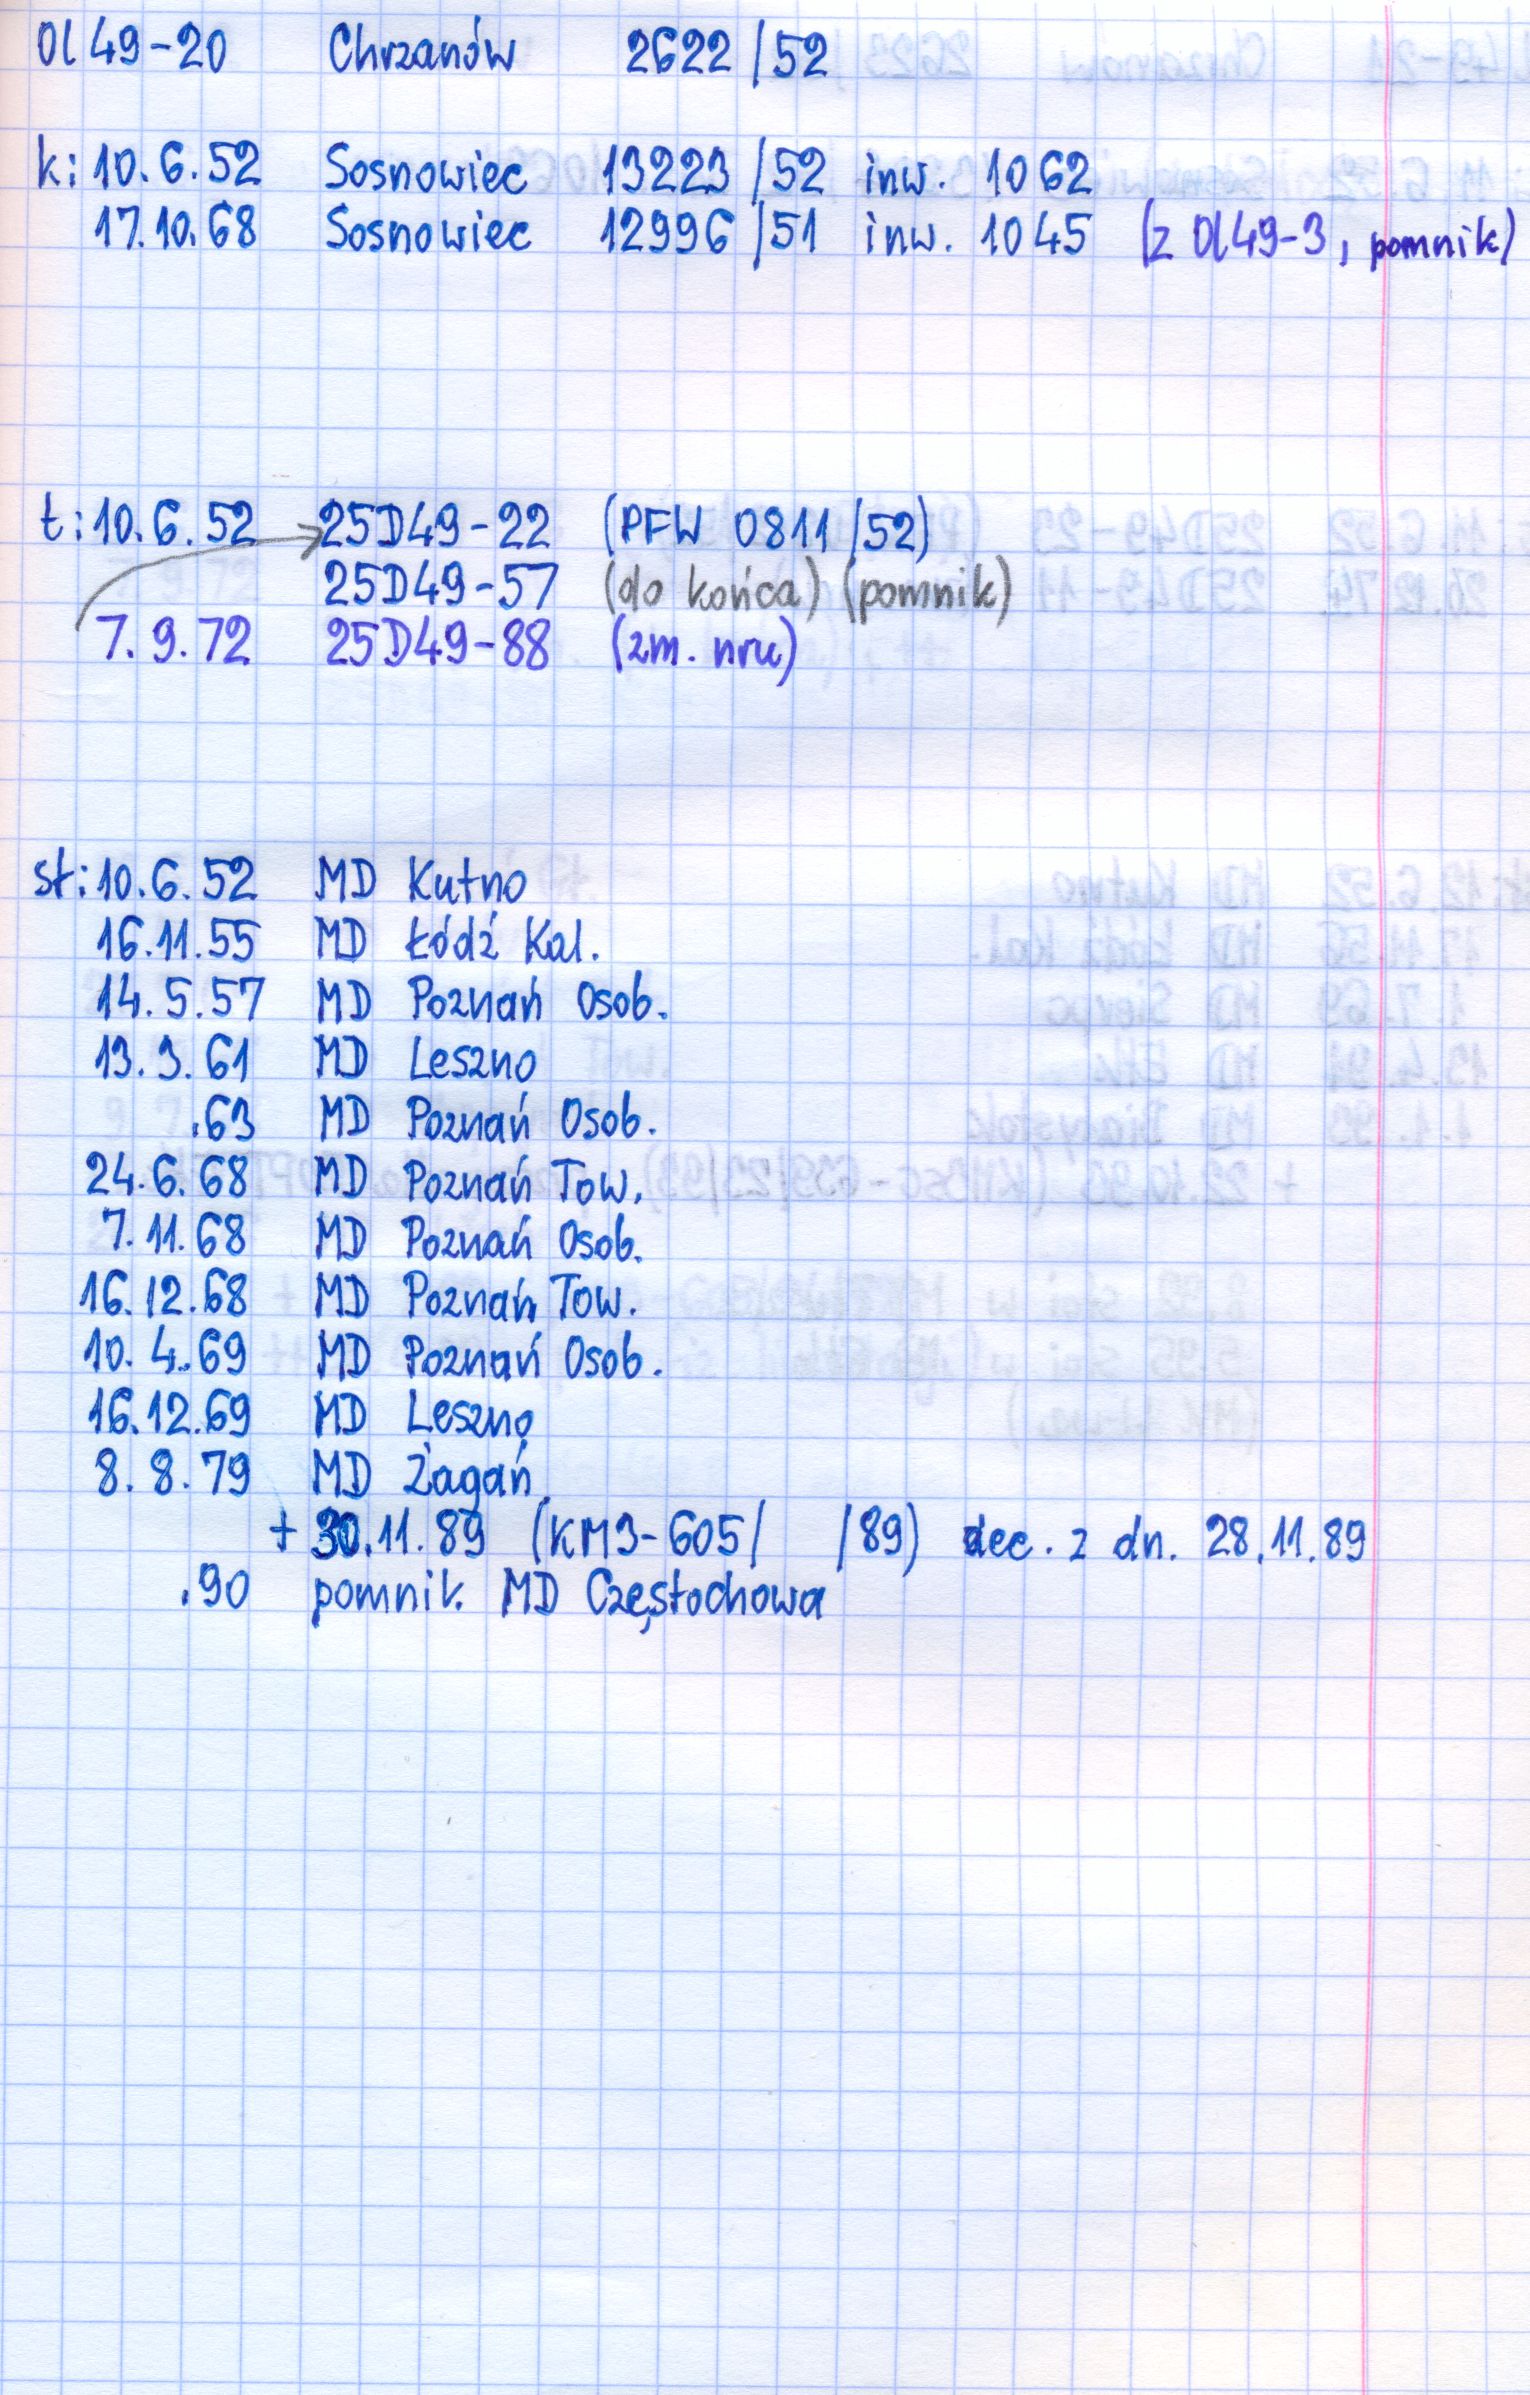 Ol49-20 Chrzanów 2622/52
k: 10.6.52 Sosnowiec 13223/52 inw. 1062
17.10.68 Sosnowiec 12996/51 inw. 1045 (z Ol49-3, pomnik)
t: 10.6.52 25D49-22 (PFW 0811/52)
25D49-57 (do końca) (pomnik)
7.9.72 25D49-88 (zm. nru)
st: 10.6.52 MD Kutno
16.11.55 MD Łódź Kal.
14.5.57 MD Poznań Osob.
13.3.61 MD Leszno
.63 MD Poznań Osob.
24.6.68 MD Poznań Tow.
7.11.68 MD Poznań Osob.
16.12.68 MD Poznań Tow.
10.4.69 MD Poznań Osob.
16.12.69 MD Leszno
8.8.79 MD Żagań
+ 30.11.89 (KM3-605/ /89) dec. z dn. 28.11.89
.90 pomnik MD Częstochowa